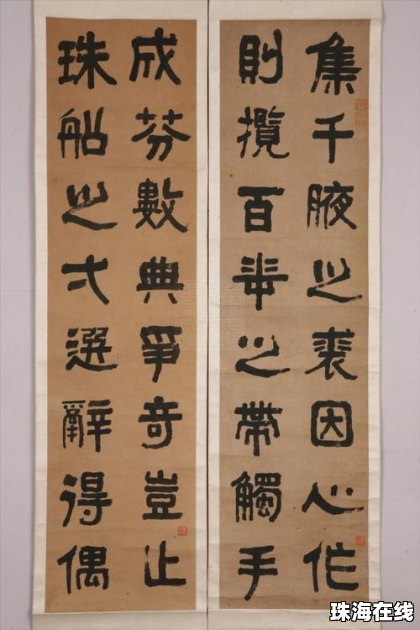 集千腋之裘因心作
則攬百華之帶觸手
成芬數典爭奇豈止
珠船之弌選辭得偶
珠海在线